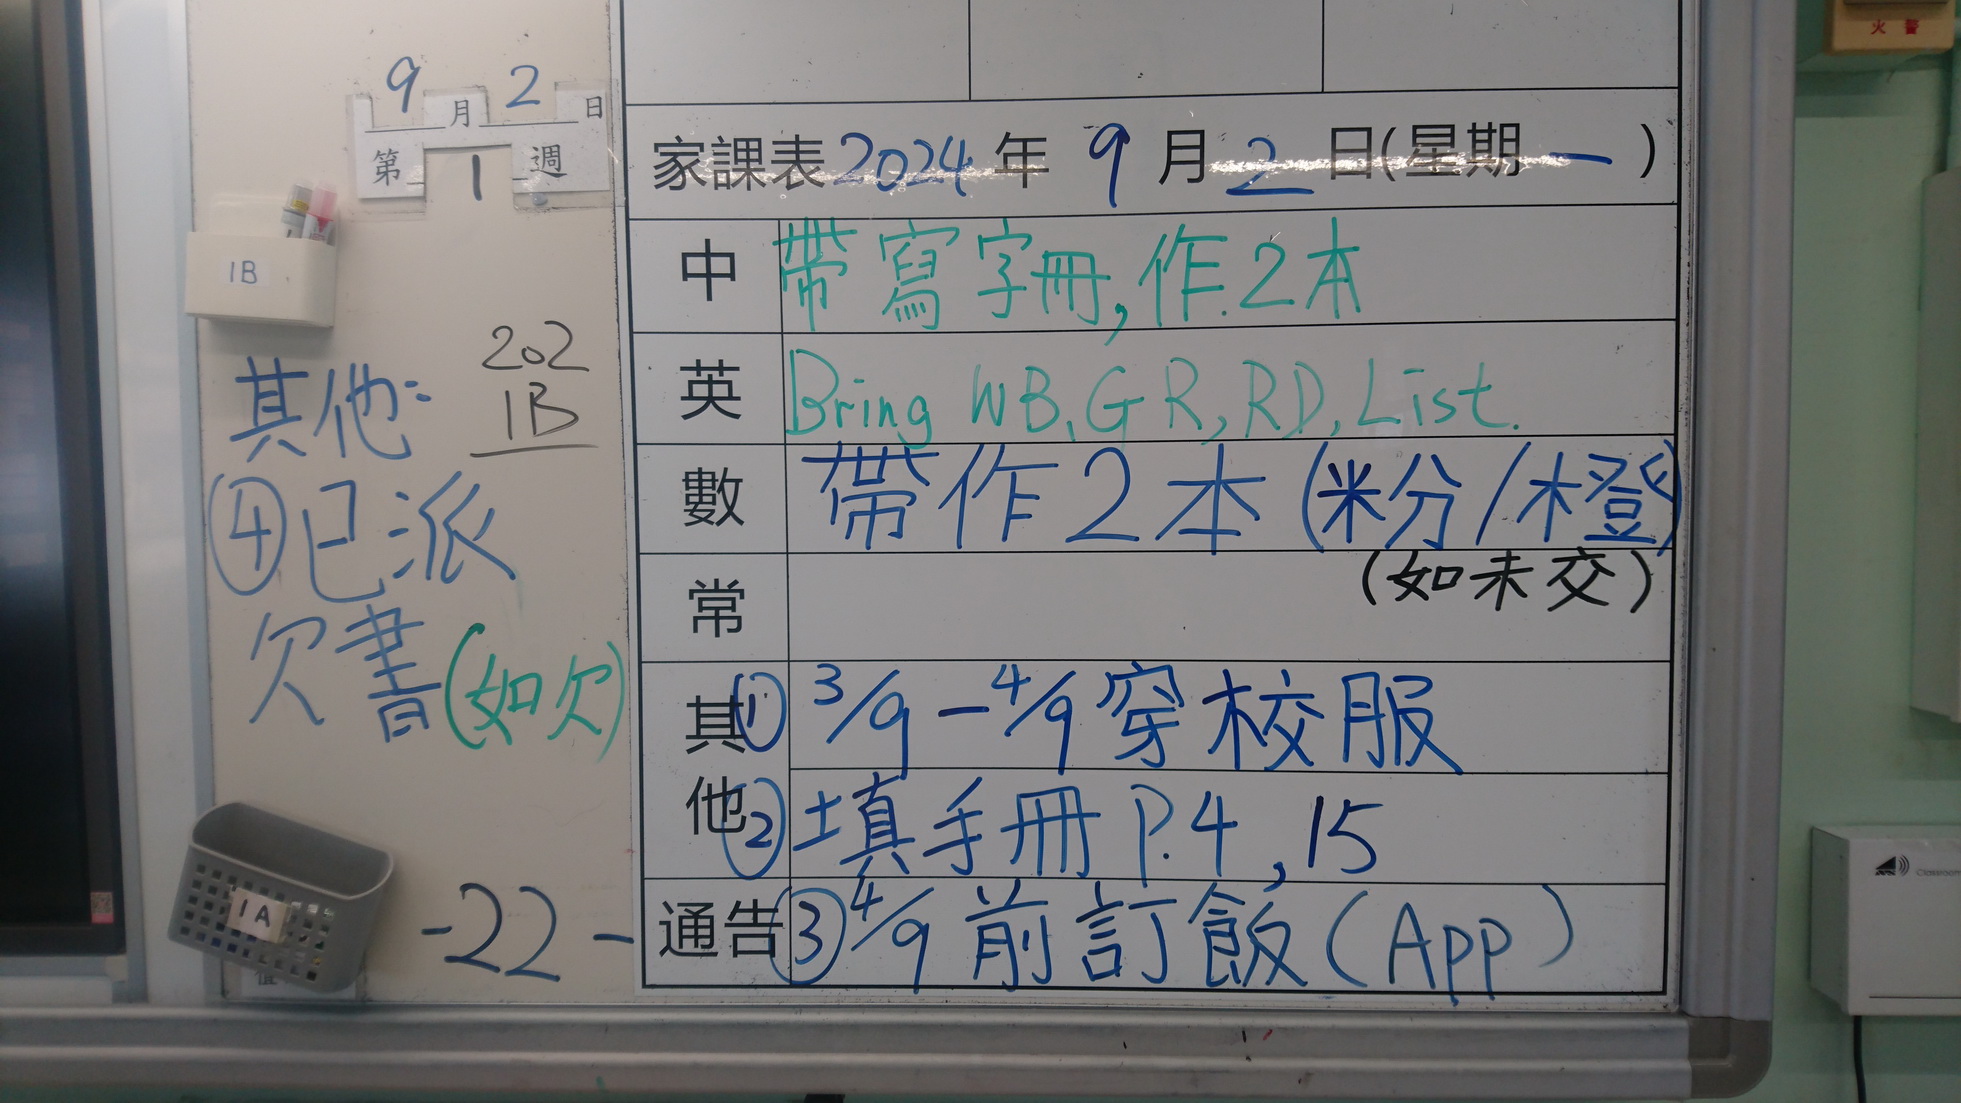 火警
9月2日
第1週
1B
202
1B
其他:
④已派
欠書(如欠)
1A
-22-
家課表2024年9月2日(星期一)
中 帶寫字冊,作2本
英 Bring WB, GR, RD, List.
數 帶作2本(粉/橙)
常 (如未交)
其他 ① 3/9-4/9穿校服
② 填手冊P.4,15
通告 ③ 4/9前訂飯(App)